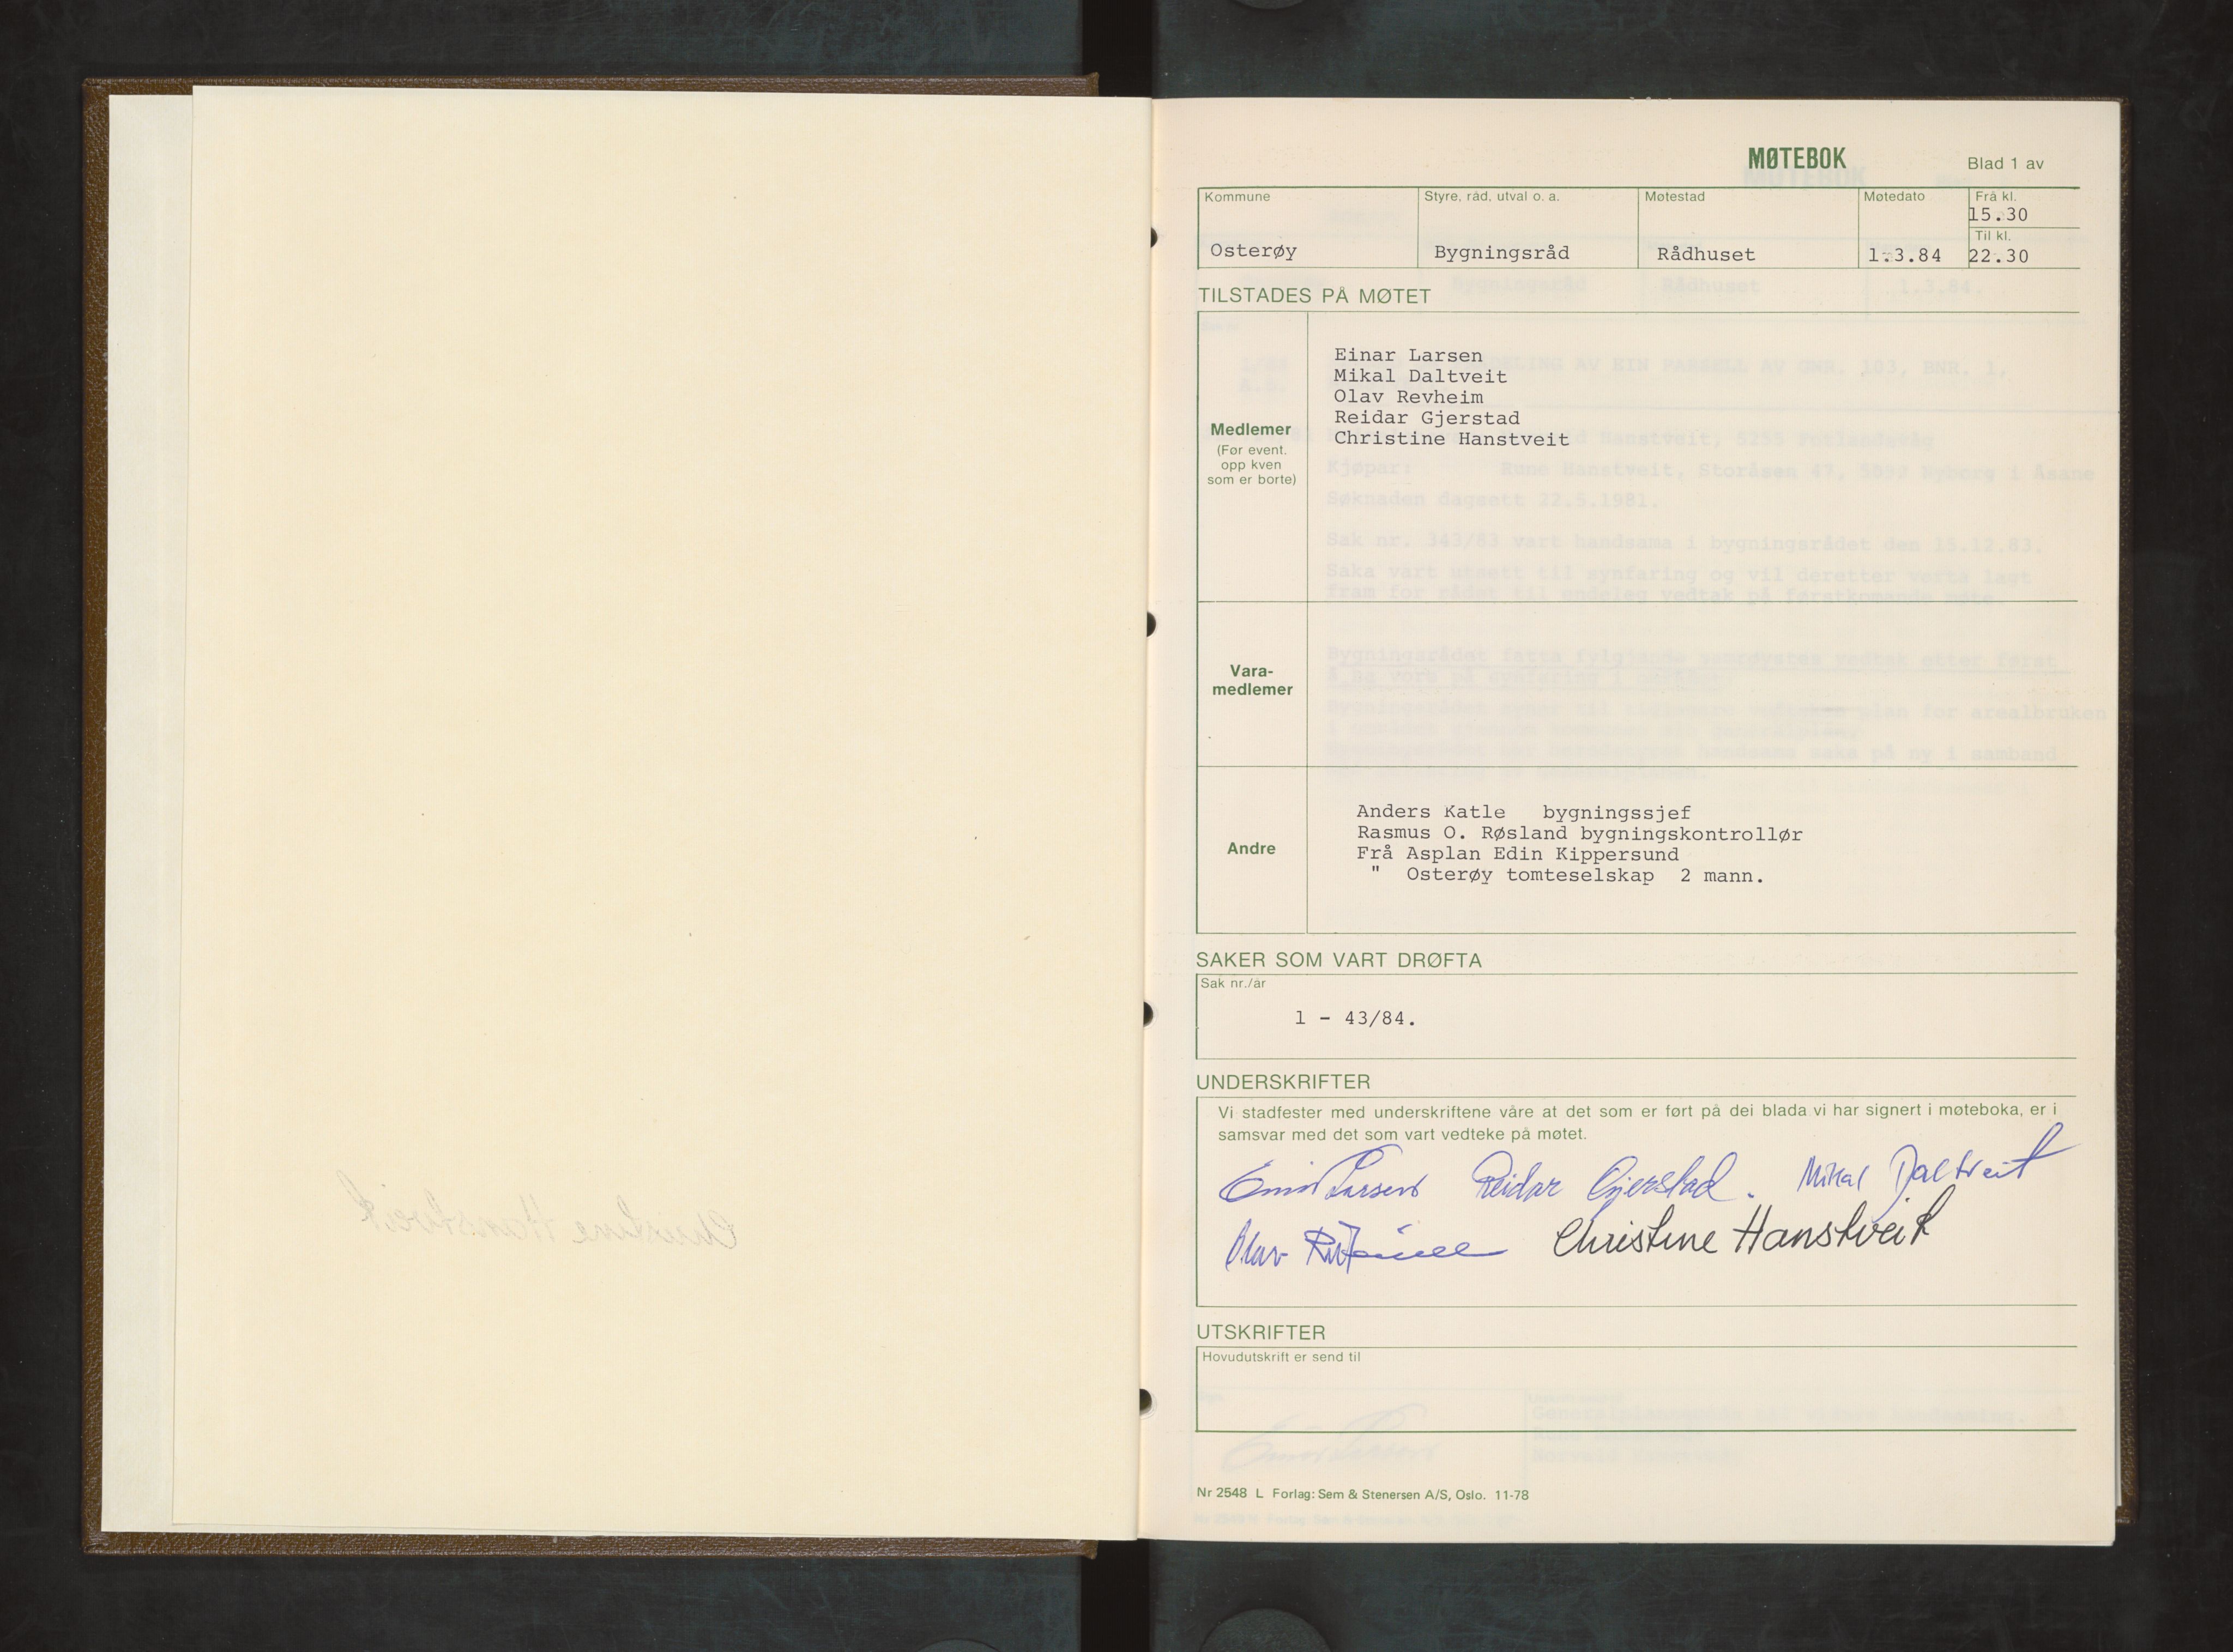 MØTEBOK
Blad 1 av
Kommune
Osterøy
Styre, råd, utval o. a.
Bygningsråd
Møtestad
Rådhuset
Møtedato
1.3.84
Frå kl.
15.30
Til kl.
22.30
TILSTADES PÅ MØTET
Medlemer
(Før event.
opp kven
som er borte)
Einar Larsen
Mikal Daltveit
Olav Revheim
Reidar Gjerstad
Christine Hanstveit
Vara-
medlemer
Andre
Anders Katle bygningssjef
Rasmus O. Røsland bygningskontrollør
Frå Asplan Edin Kippersund
" Osterøy tomteselskap 2 mann.
SAKER SOM VART DRØFTA
Sak nr./år
1 - 43/84.
UNDERSKRIFTER
Vi stadfester med underskriftene våre at det som er ført på dei blada vi har signert i møteboka, er i
samsvar med det som vart vedteke på møtet.
Einar Larsen Reidar Gjerstad. Mikal Daltveit
Olav Revheim Christine Hanstveit
UTSKRIFTER
Hovudutskrift er send til
Nr 2548 L Forlag: Sem & Stenersen A/S, Oslo. 11-78